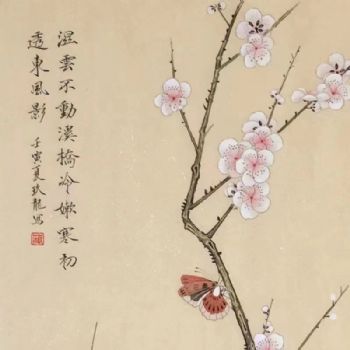 湿雲不動溪橋冷嫩寒初
透東風影
壬寅夏玖龍写